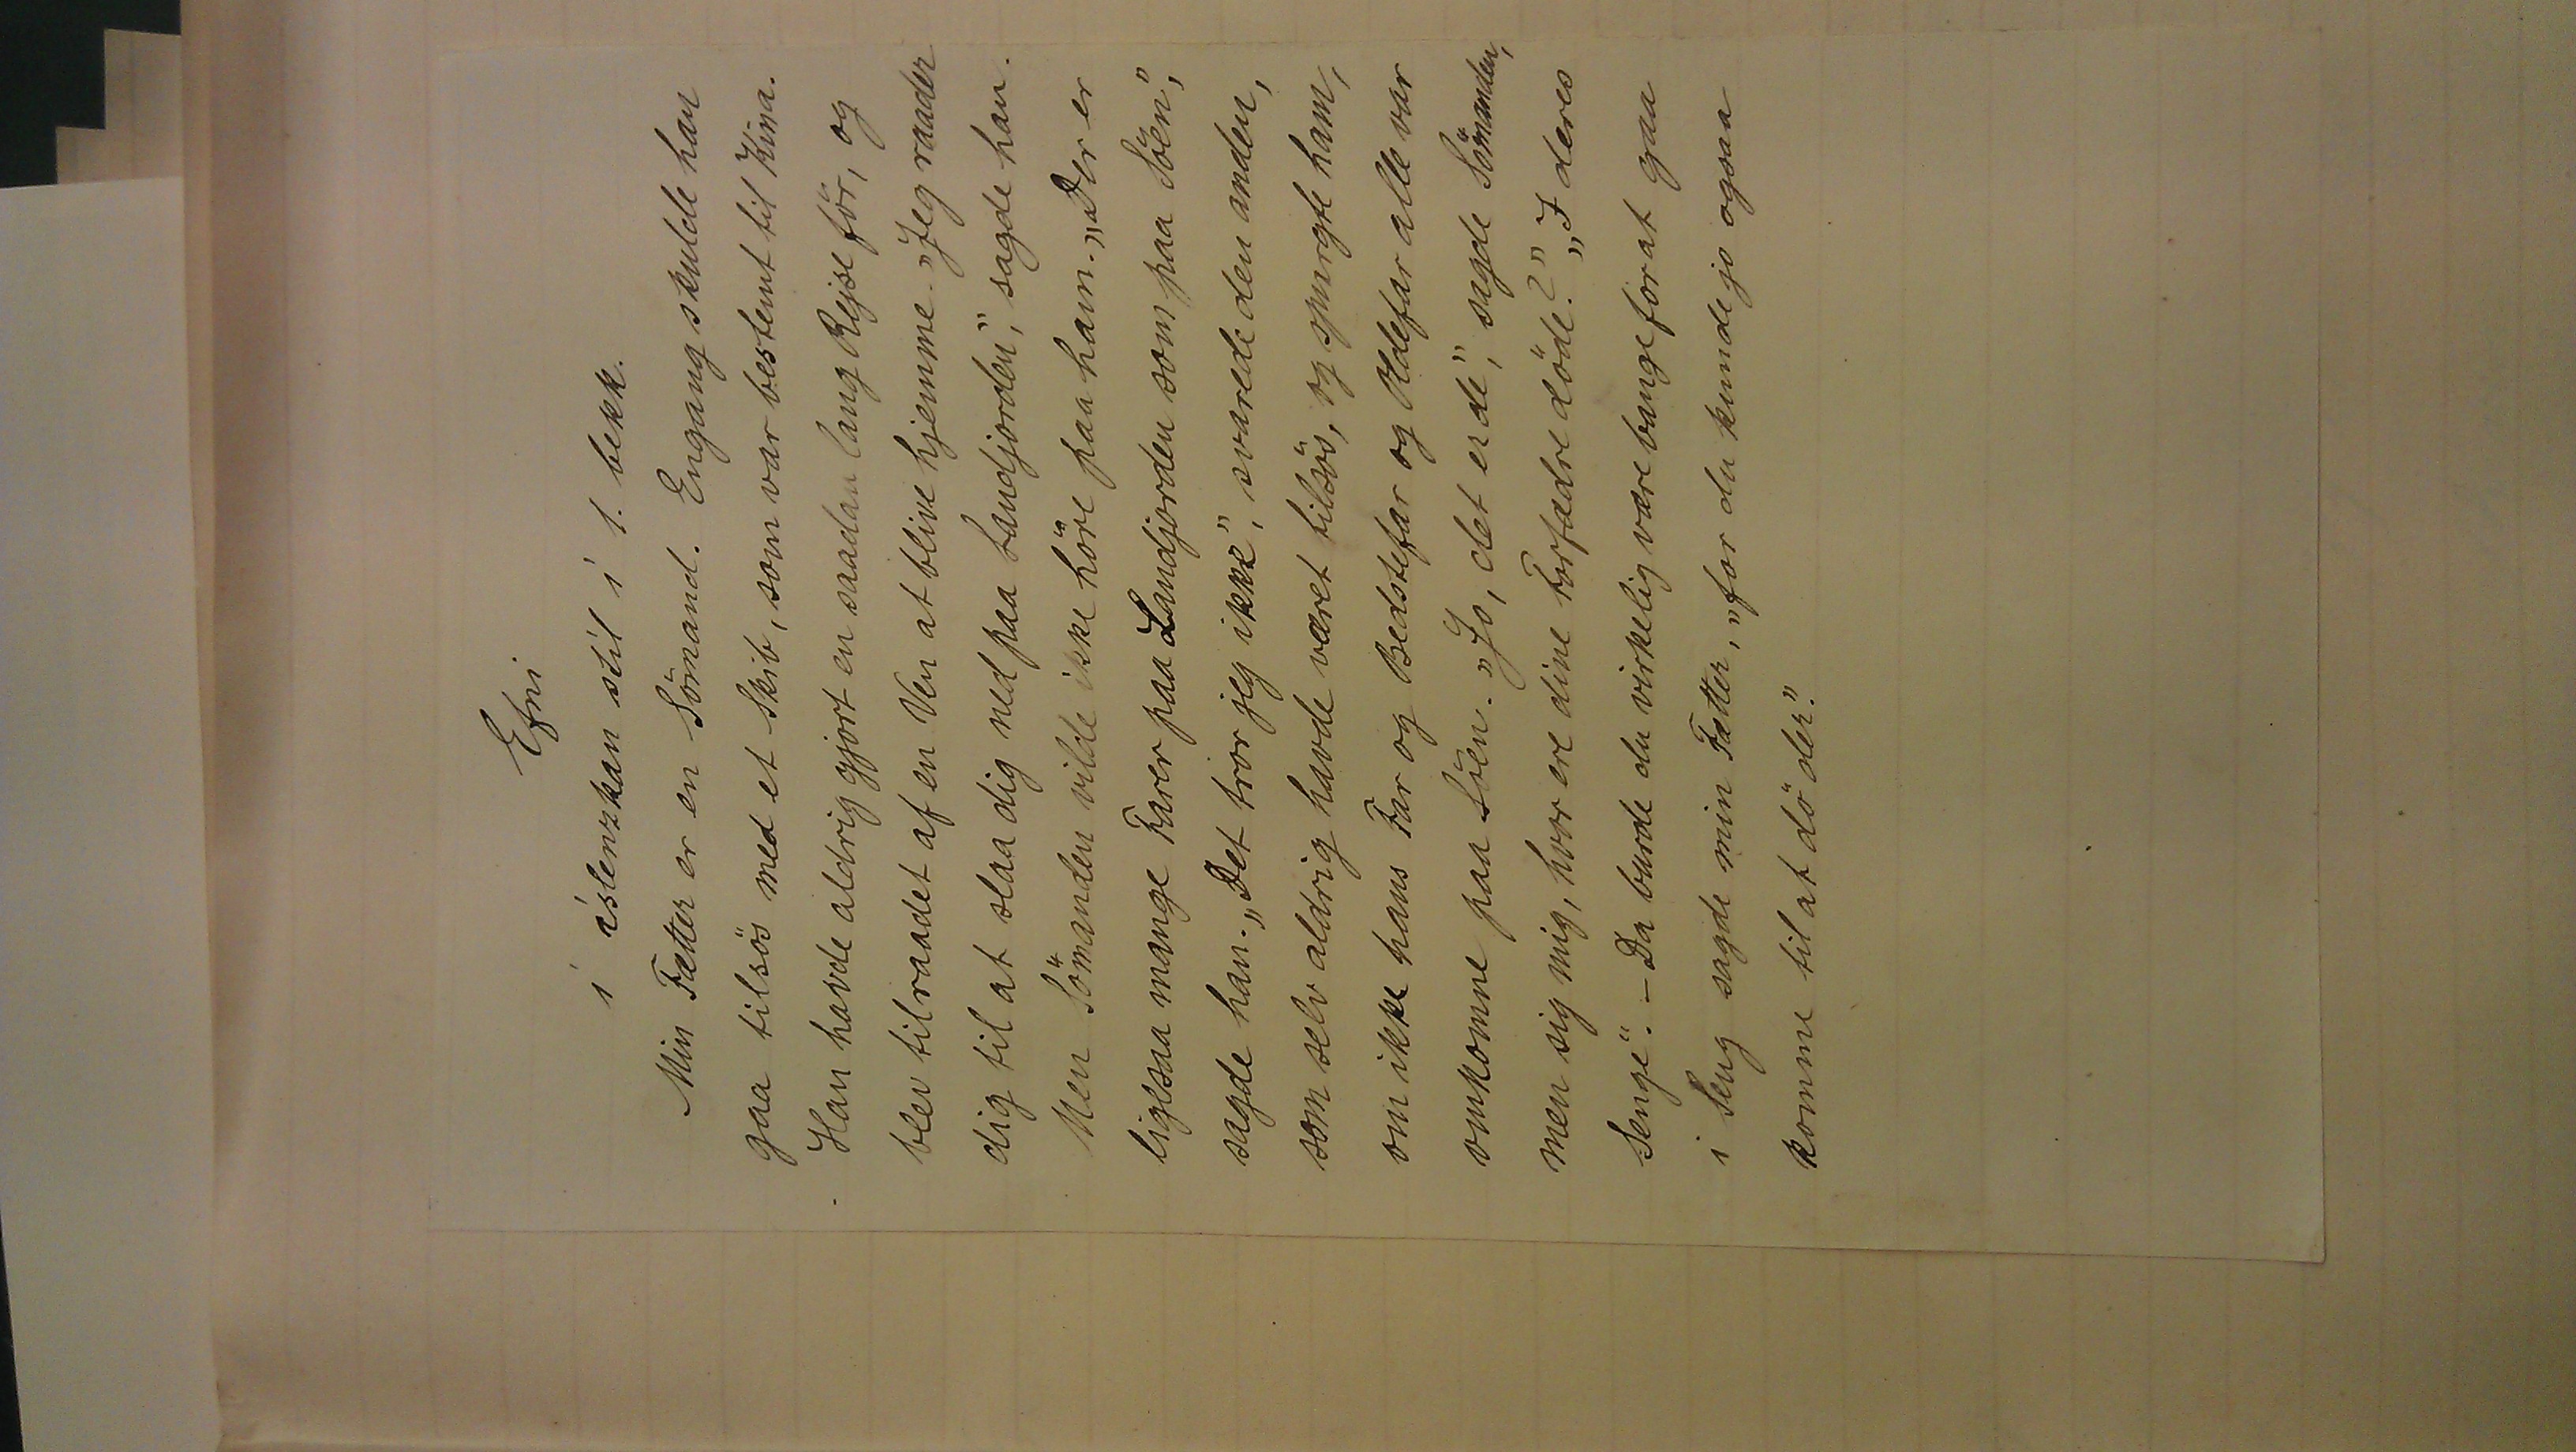 Efni
í íslenzkan stíl í 1. bekk.
Min Fætter er en Sömand. Engang skulde han
gaa tilsös med et Skib, som var bestemt til Kina.
Han havde aldrig gjort en saadan lang Rejse för, og
blev tilraadet af en Ven at blive hjemme. „Jeg raader
dig til at slaa dig ned paa Landjorden”, sagde han.
Men Sömanden vilde ikke höre paa ham. „Der er
ligesaa mange Farer paa Landjorden som paa Söen”,
sagde han. „Det tror jeg ikke”, svarede den anden,
som selv aldrig havde været tilsös, og spurgte ham,
om ikke hans Far og Bedstefar og Oldefar alle var
omkomne paa Söen. „Jo, det er de”, sagde Sömanden,
men sig mig, hvor ere dine Forfædre döde?” „I deres
Senge”. – Da burde du virkelig være bange for at gaa
i Seng sagde min Fætter, „for du kunde jo ogsaa
komme til at dö der.”